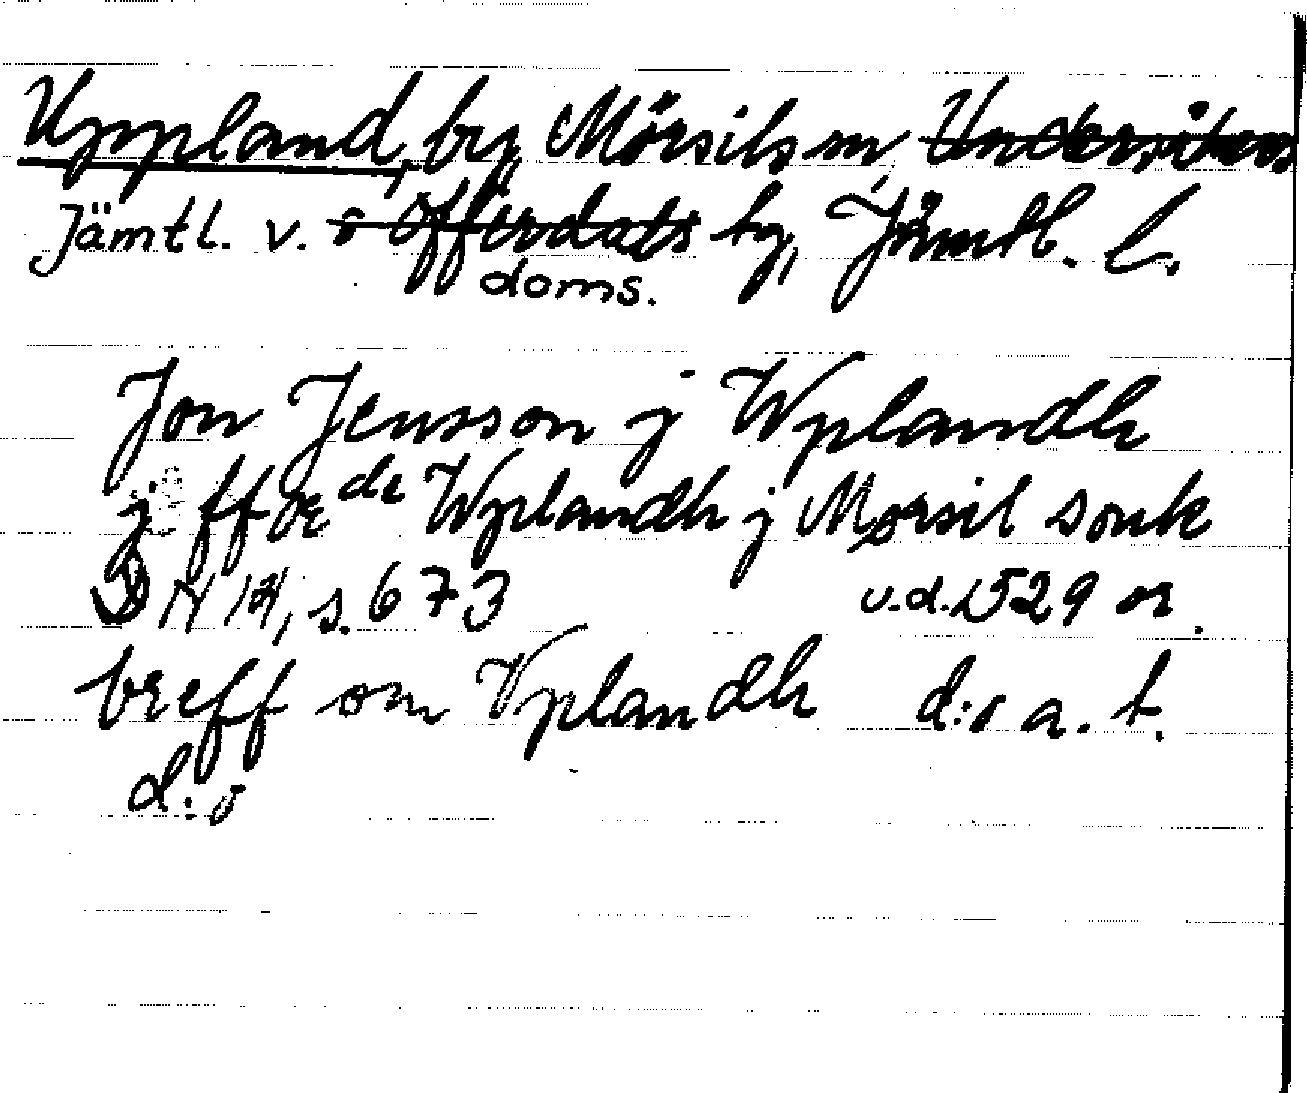 Uppland, by, Mörsils sn, Undersåkers
Jämtl. v. o Offerdals tg, Jämtl. l.
doms.
Jon Jensson j Wplandh
j ff de Wplandh j Morsil sonk
DN 14, s. 673 u.d. 1529 or.
breff om Vplandh d:o a. t.
d:o